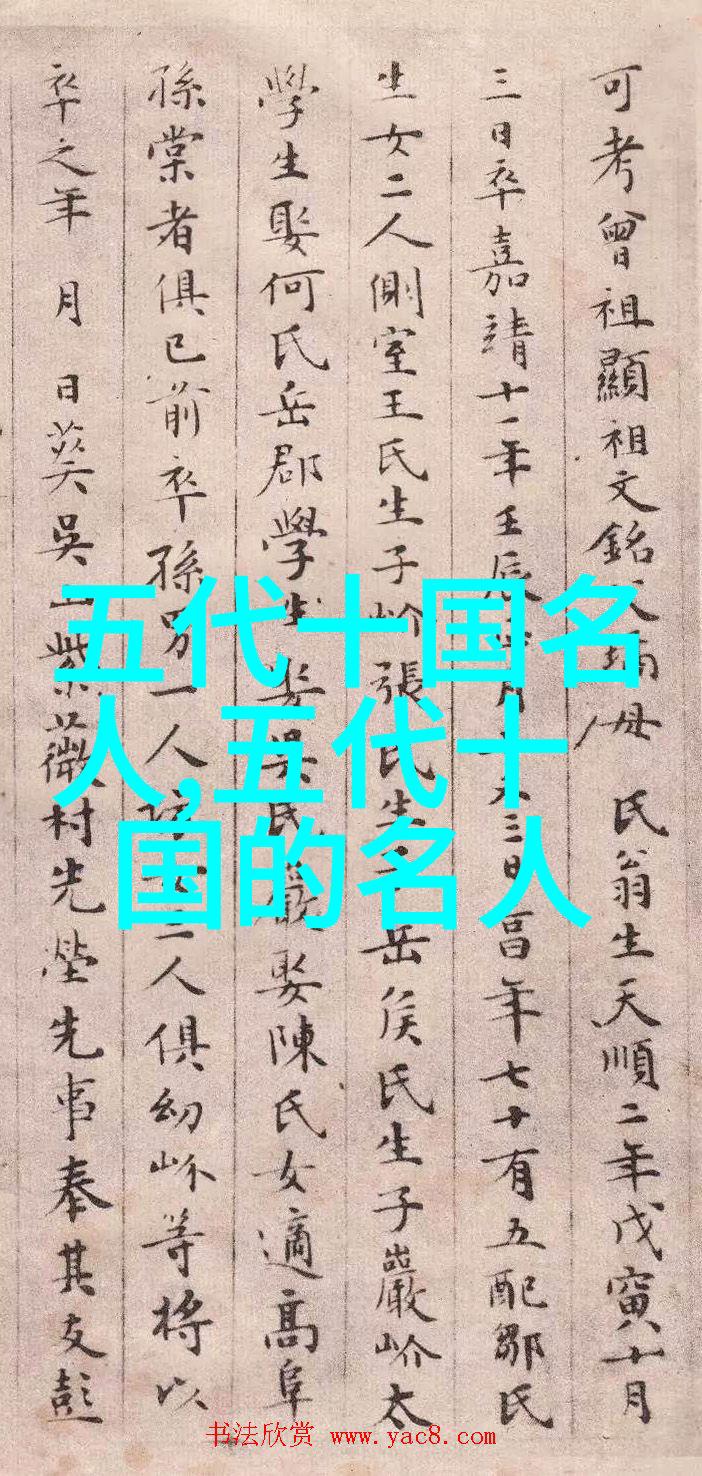 可考曾祖顯祖文銘母 氏翁生天順二年戊寅十月
三日卒嘉靖十一年壬辰月三日年七十有五配鄒氏
生女二人側室王氏生子岕張氏生子岳矦氏生子巖岕太
學生娶何氏岳郡學生娶吳氏巖娶陳氏女適髙阜
孫棠者俱已前卒孫男一人女二人俱幼岕等將以
卒之年 月 日葬吳紫薇村先塋先事奉其友彭
五代十国名
人,五代十
国的名人
书法欣赏 www.yac8.com